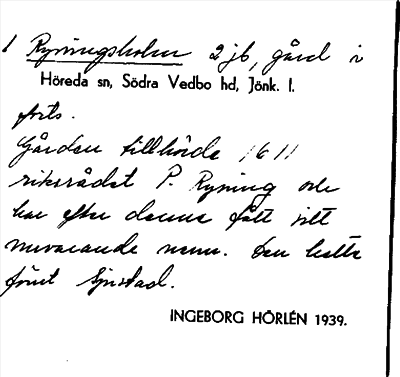 1 Ryningsholm 2 jb, gård i
Höreda sn, Södra Vedbo hd, Jönk. l.
forts.
Gården tillhörde 1611
riksrådet P. Ryning och
har efter denne fått sitt
nuvarande namn. Den hette
förut
INGEBORG HÖRLÉN 1939.